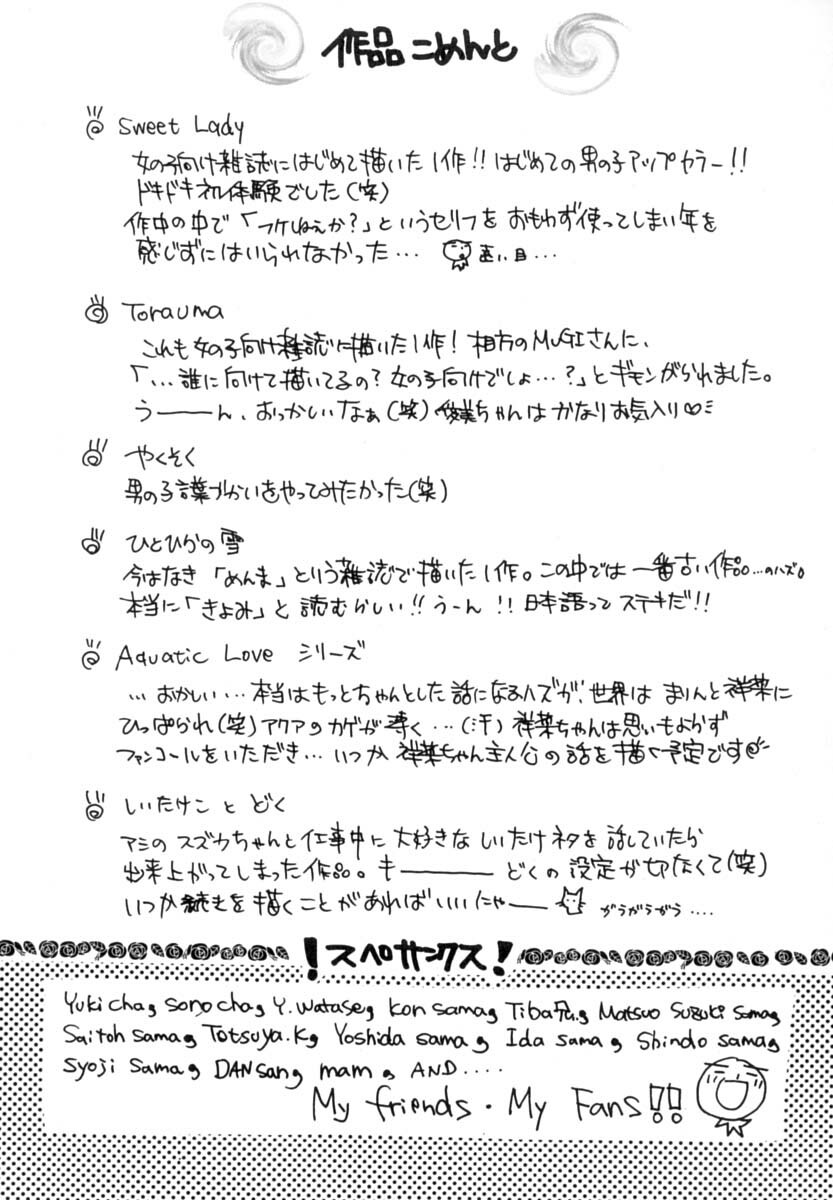 作品こめんと
Sweet Lady
女の子向け雑誌にはじめて描いた1作!! はじめての男の子アップカラー!!
ドキドキネル体験でした(笑)
作中の中で「フケしねえか?」というセリフをおもわず使ってしまい年を
感じずにはいられなかった… 遠い目…
Torauma
これも女の子向け雑誌に描いた1作! 相方のMUGIさんに、
「…誰に向けて描いてるの? 女の子向けでしょ…?」とギモンがられました。
うーーん、おっかしいなぁ(笑) ちゃんはかなりお気入り♡
やくそく
男の子言葉づかいをやってみたかった(笑)
ひとひらの雪
今はなき「めんま」という雑誌で描いた1作。この中では一番古い作品…のハズ。
本当に「きよみ」と読むらしい!! うーん!! 日本語ってステキだ!!
Aquatic Love シリーズ
…おかしい…本当はもっとちゃんとした話になるハズが、世界はまりんと祥菜に
ひっぱられ(笑)アクアのカゲが薄く…(汗) 祥菜ちゃんは思いもよらず
ファンコールをいただき…いつか祥菜ちゃん主人公の話を描く予定です
しいたけこ と どく
アシのスズカちゃんと仕事中に大好きなしいたけネタを話していたら
出来上がってしまった作品。キーーーー どくの設定が切なくて(笑)
いつか続きを描くことがあればいいにゃー がうがうがう….
!スペサンクス!
Yukicha, sonocha, Y.watase, kon sama, Tiba兄, Matsuo Suzuki sama,
Saitoh sama, Totsuya.K, Yoshida sama, Ida sama, Shindo sama,
Syoji sama, DANsan, mam, AND....
My friends・My Fans!!